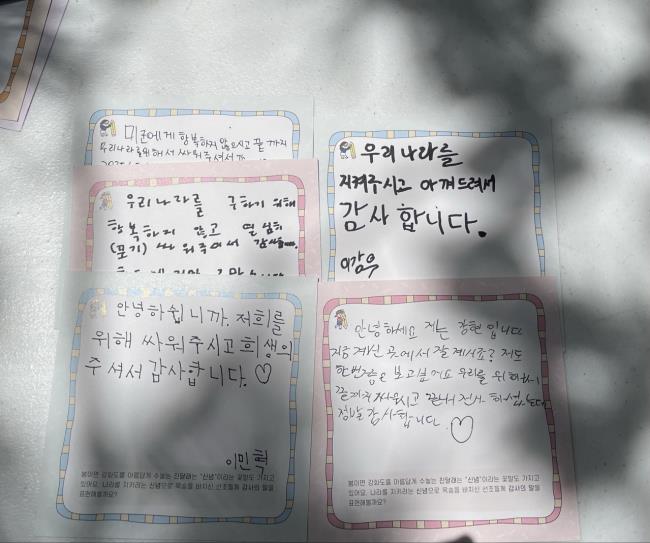 미군에게 항복하지 않으시고 끝까지
우리나라를 위해서 싸워주셔서
우리나라를 구하기 위해
항복하지 않고 열심히
(포기) 싸워주어서
우리나라를
지켜주시고 아껴드려서
감사합니다.
이강우
안녕하쉽니까. 저희를
위해 싸워주시고희생의
주셔서 감사합니다. ♡
이민혁
봄이면 강화도를 아름답게 수놓는 진달래는 "신념"이라는 꽃말도 가지고
있어요. 나라를 지키려는 신념으로 목숨을 바치신 선조들께 감사의 말을
표현해볼까요?
안녕하세요 저는 강현 입니다
지금 계신 곳에서 잘 계시죠? 저도
한번쯤은 보고싶어요 우리를 위해
끝까지 싸우시고
정말 감사합니다 ♡
봄이면 강화도를 아름답게 수놓는 진달래는 "신념"이라는 꽃말도 가지고
있어요. 나라를 지키려는 신념으로 목숨을 바치신 선조들께 감사의 말을
표현해볼까요?